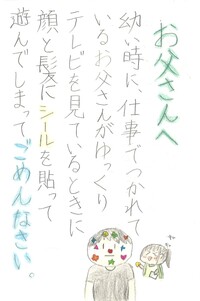 お父さんへ
幼い時に、仕事でつかれて
いるお父さんがゆっくり
テレビを見ているときに
顔と髪にシールを貼って
遊んでしまってごめんなさい。